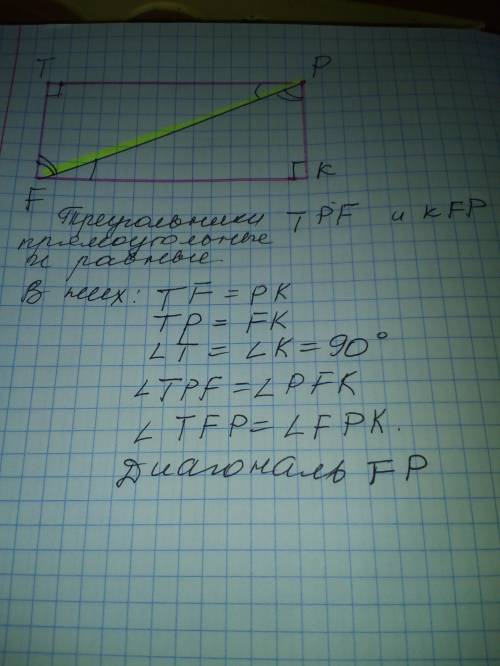 T P
F K
Треугольники TPF и KFP
прямоугольные
и равные.
В них: TF = PK
TP = FK
∠T = ∠K = 90°
∠TPF = ∠PFK
∠TFP = ∠FPK.
Диагональ FP